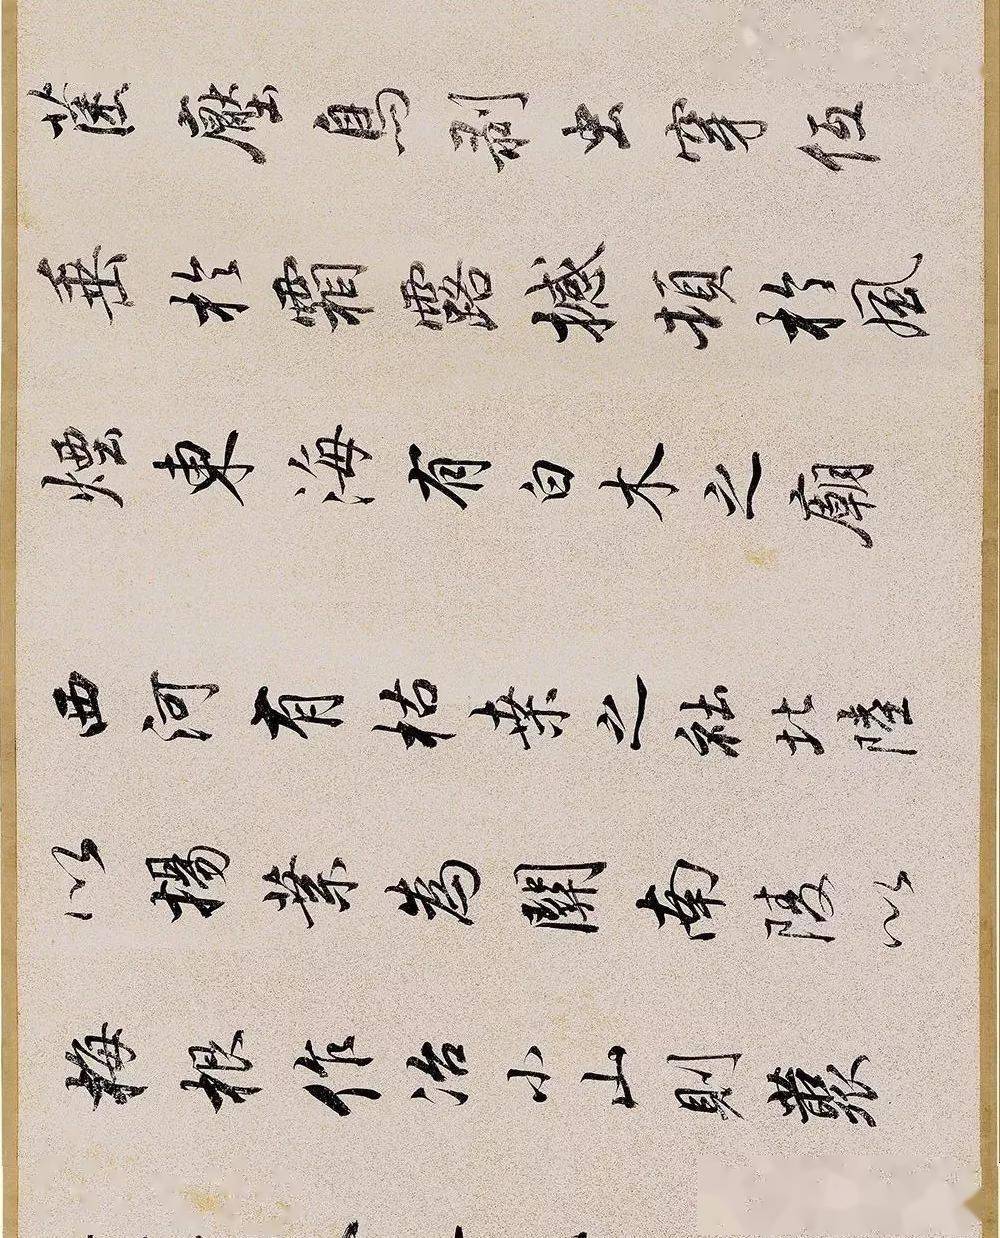 菌壓鳥剥虫穿低
垂於霜露撼頓於風
煙東海有白木之廟
西河有枯桑之社北陸
以楊葉為關南陵以
梅根作冶小山則叢